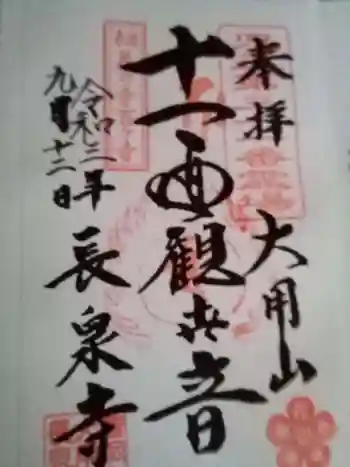 奉拝
大用山
十一面観世音
長泉寺
令和三年
九月十二日